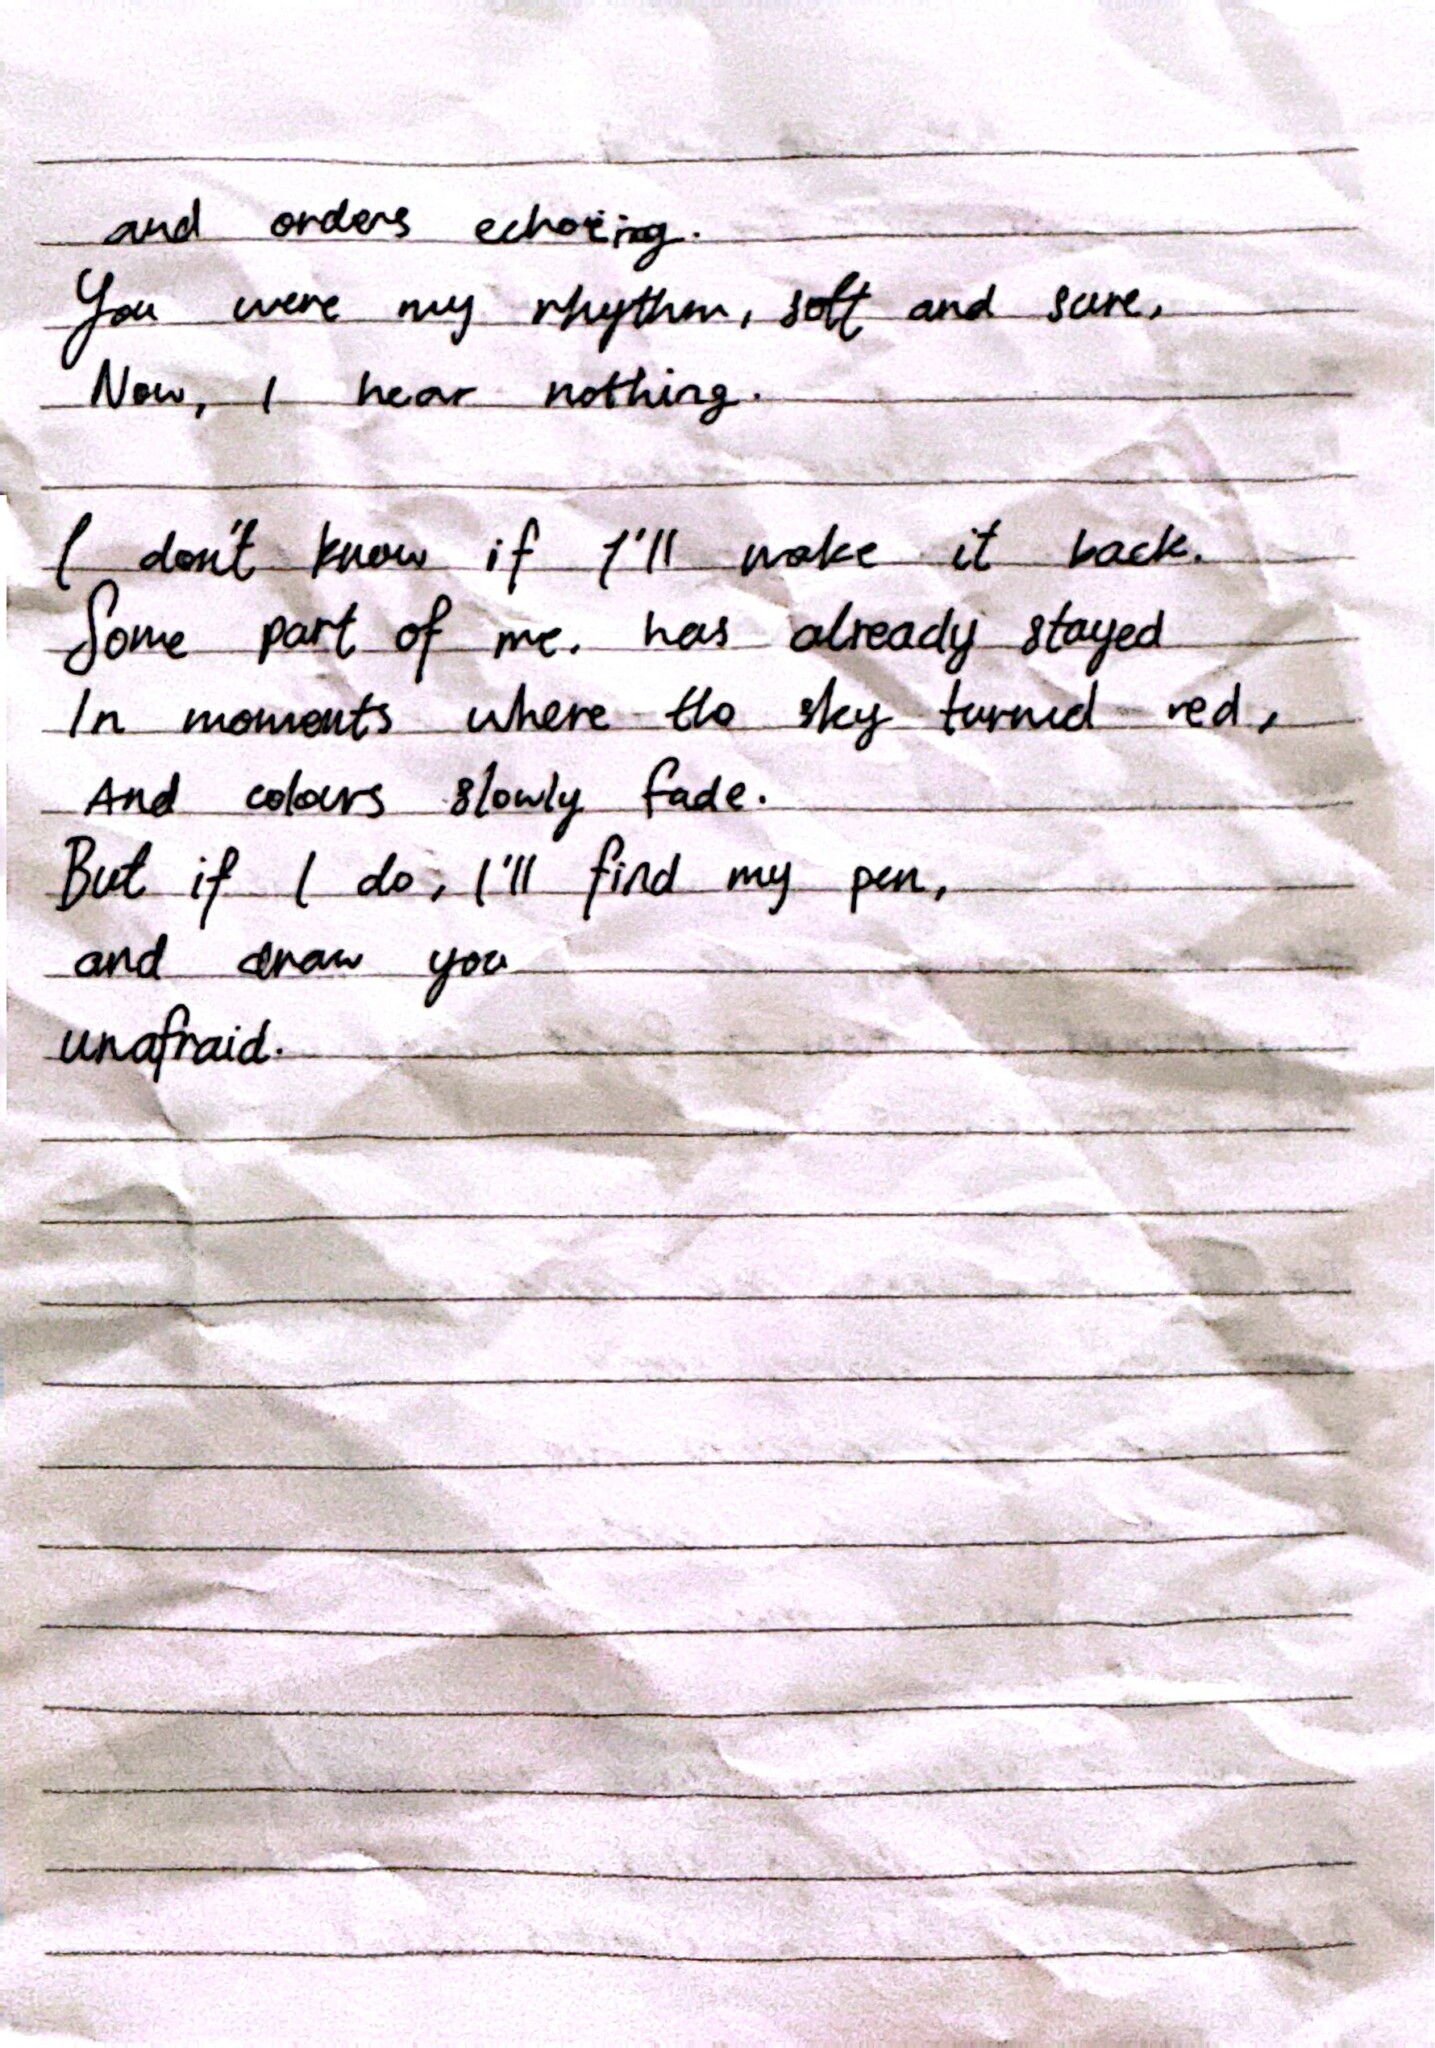 and orders echoing.
You were my rhythm, soft and sure,
Now, I hear nothing.
I don't know if I'll make it back.
Some part of me. has already stayed
In moments where the sky turned red,
And colours slowly fade.
But if I do, I'll find my pen,
and draw you
unafraid.